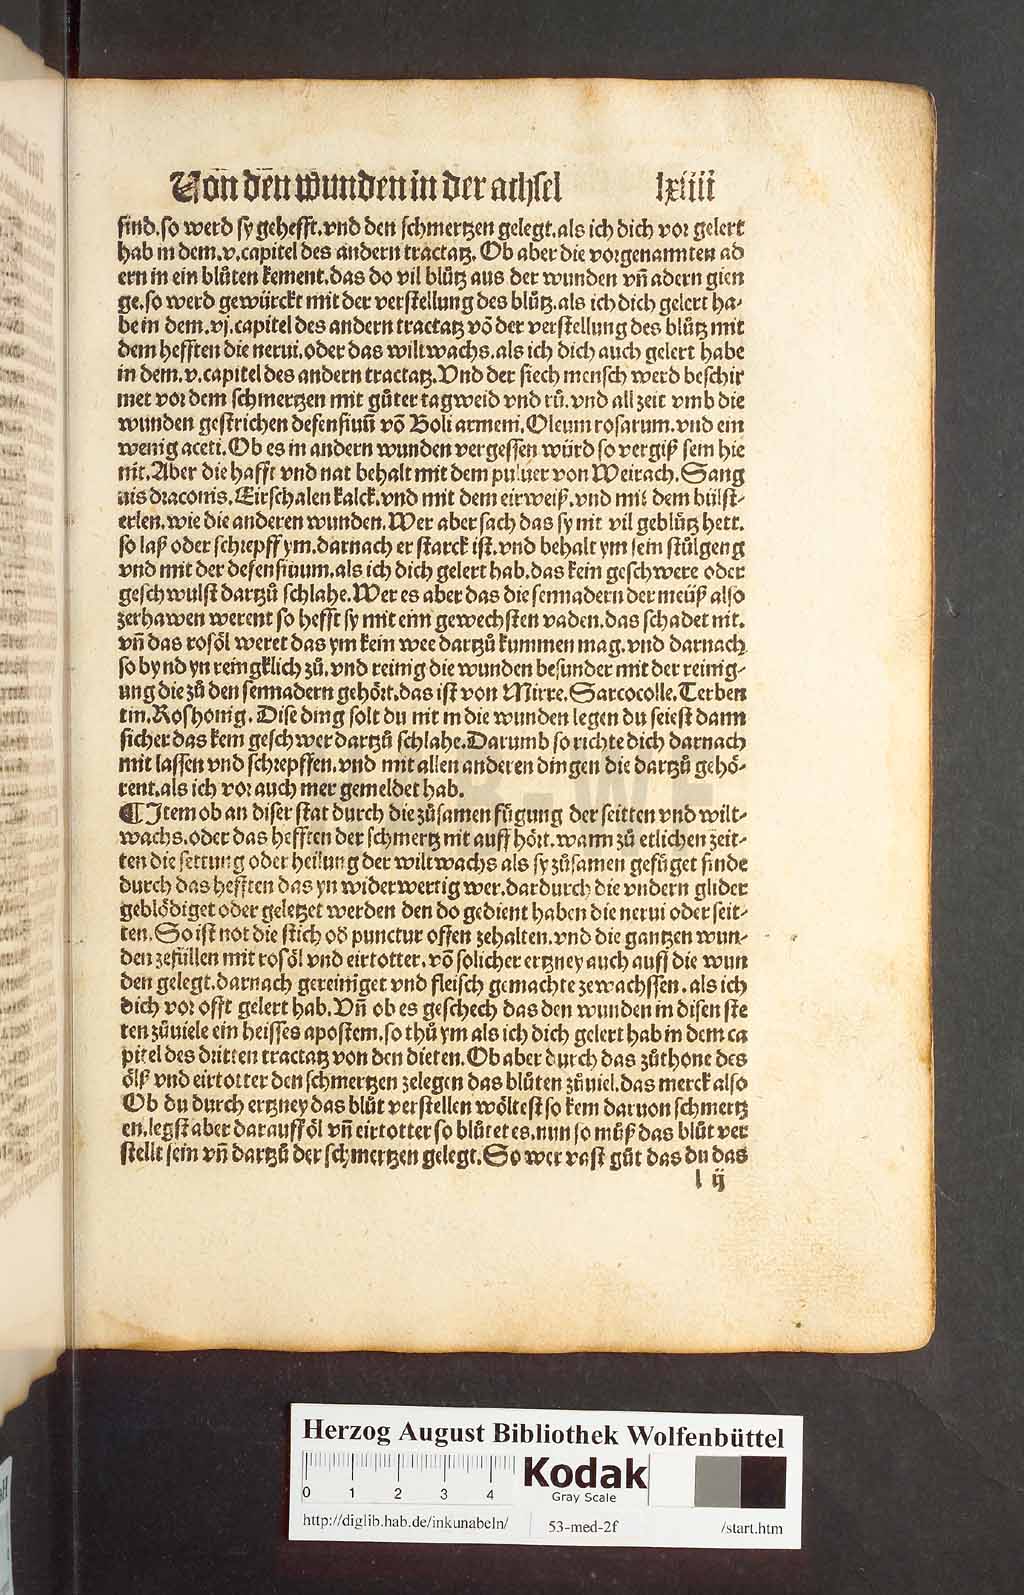 Von den wunden in der achsel lxiiii
sind.so werd sy gehefft.vnd den schmertzen gelegt.als ich dich vor gelert
hab in dem.v.capitel des andern tractatz. Ob aber die vorgenannten ad
ern in ein blůten kement.das do vil blůtz aus der wunden vñ adern gien
ge.so werd gewürckt mit der verstellung des blůtz.als ich dich gelert ha-
be in dem.vj.capitel des andern tractatz võ der verstellung des blůtz mit
dem hefften die nerui.oder das wiltwachs.als ich dich auch gelert habe
in dem.v.capitel des andern tractatz.Vnd der siech mensch werd beschir
met vor dem schmertzen mit gůter tagweid vnd rů.vnd all zeit vmb die
wunden gestrichen defensiuũ võ Boli armeni.Oleum rosarum.vnd ein
wenig aceti.Ob es in andern wunden vergessen würd so vergiß sein hie
nit.Aber die hafft vnd nat behalt mit dem puluer von Weirach.Sang
uis draconis.Eirschalen kalck.vnd mit dem eirweiß.vnd mit dem bülst-
erlen.wie die anderen wunden.Wer aber sach das sy nit vil geblůtz hett.
so laß oder schrepff ym.darnach er starck ist.vnd behalt ym sein stůlgeng
vnd mit der defensiuum.als ich dich gelert hab.das kein geschwere oder
geschwulst dartzů schlahe.Wer es aber das die sennadern der meüß also
zerhawen werent so hefft sy mit eim gewechsten vaden.das schadet nit.
vñ das rosöl weret das ym kein wee dartzů kummen mag.vnd darnach
so bynd yn reingklich zů.vnd reinig die wunden besunder mit der reinig-
ung die zů den sennadern gehört.das ist von Mirre.Sarcocolle.Terben
tin.Roshonig. Dise ding solt du nit in die wunden legen du seiest dann
sicher das kein geschwer dartzů schlahe.Darumb so richte dich darnach
mit lassen vnd schrepffen.vnd mit allen anderen dingen die dartzů gehö-
rent.als ich vor auch mer gemeldet hab.
¶ Item ob an diser stat durch die zůsamen fůgung der seitten vnd wilt-
wachs.oder das hefften der schmertz nit auff hört.wann zů etlichen zeit-
ten die settung oder heilung der wiltwachs als sy zůsamen gefůget sinde
durch das hefften das yn widerwertig wer.dardurch die vndern glider
geblödiget oder geletzet werden den do gedient haben die nerui oder seit-
ten.So ist not die stich od punctur offen zehalten.vnd die gantzen wun-
den zefüllen mit rosöl vnd eirtotter.võ solicher ertzney auch auff die wun
den gelegt.darnach gereiniget vnd fleisch gemachte zewachssen.als ich
dich vor offt gelert hab.Vñ ob es geschech das den wunden in disen ste
ten zůuiele ein heisses apostem.so thů ym als ich dich gelert hab in dem ca
pitel des dritten tractatz von den dieten.Ob aber durch das zůthone des
ölß vnd eirtotter den schmertzen zelegen das blůten zůuiel.das merck also
Ob du durch ertzney das blůt verstellen wöltest so kem daruon schmertz
en.legst aber darauff öl vñ eirtotter so blůtet es.nun so můß das blůt ver
stellt sein vñ dartzů der schmertzen gelegt.So wer vast gůt das du das
l ij
Herzog August Bibliothek Wolfenbüttel
0 1 2 3 4
Kodak
Gray Scale
http://diglib.hab.de/inkunabeln/ 53-med-2f /start.htm